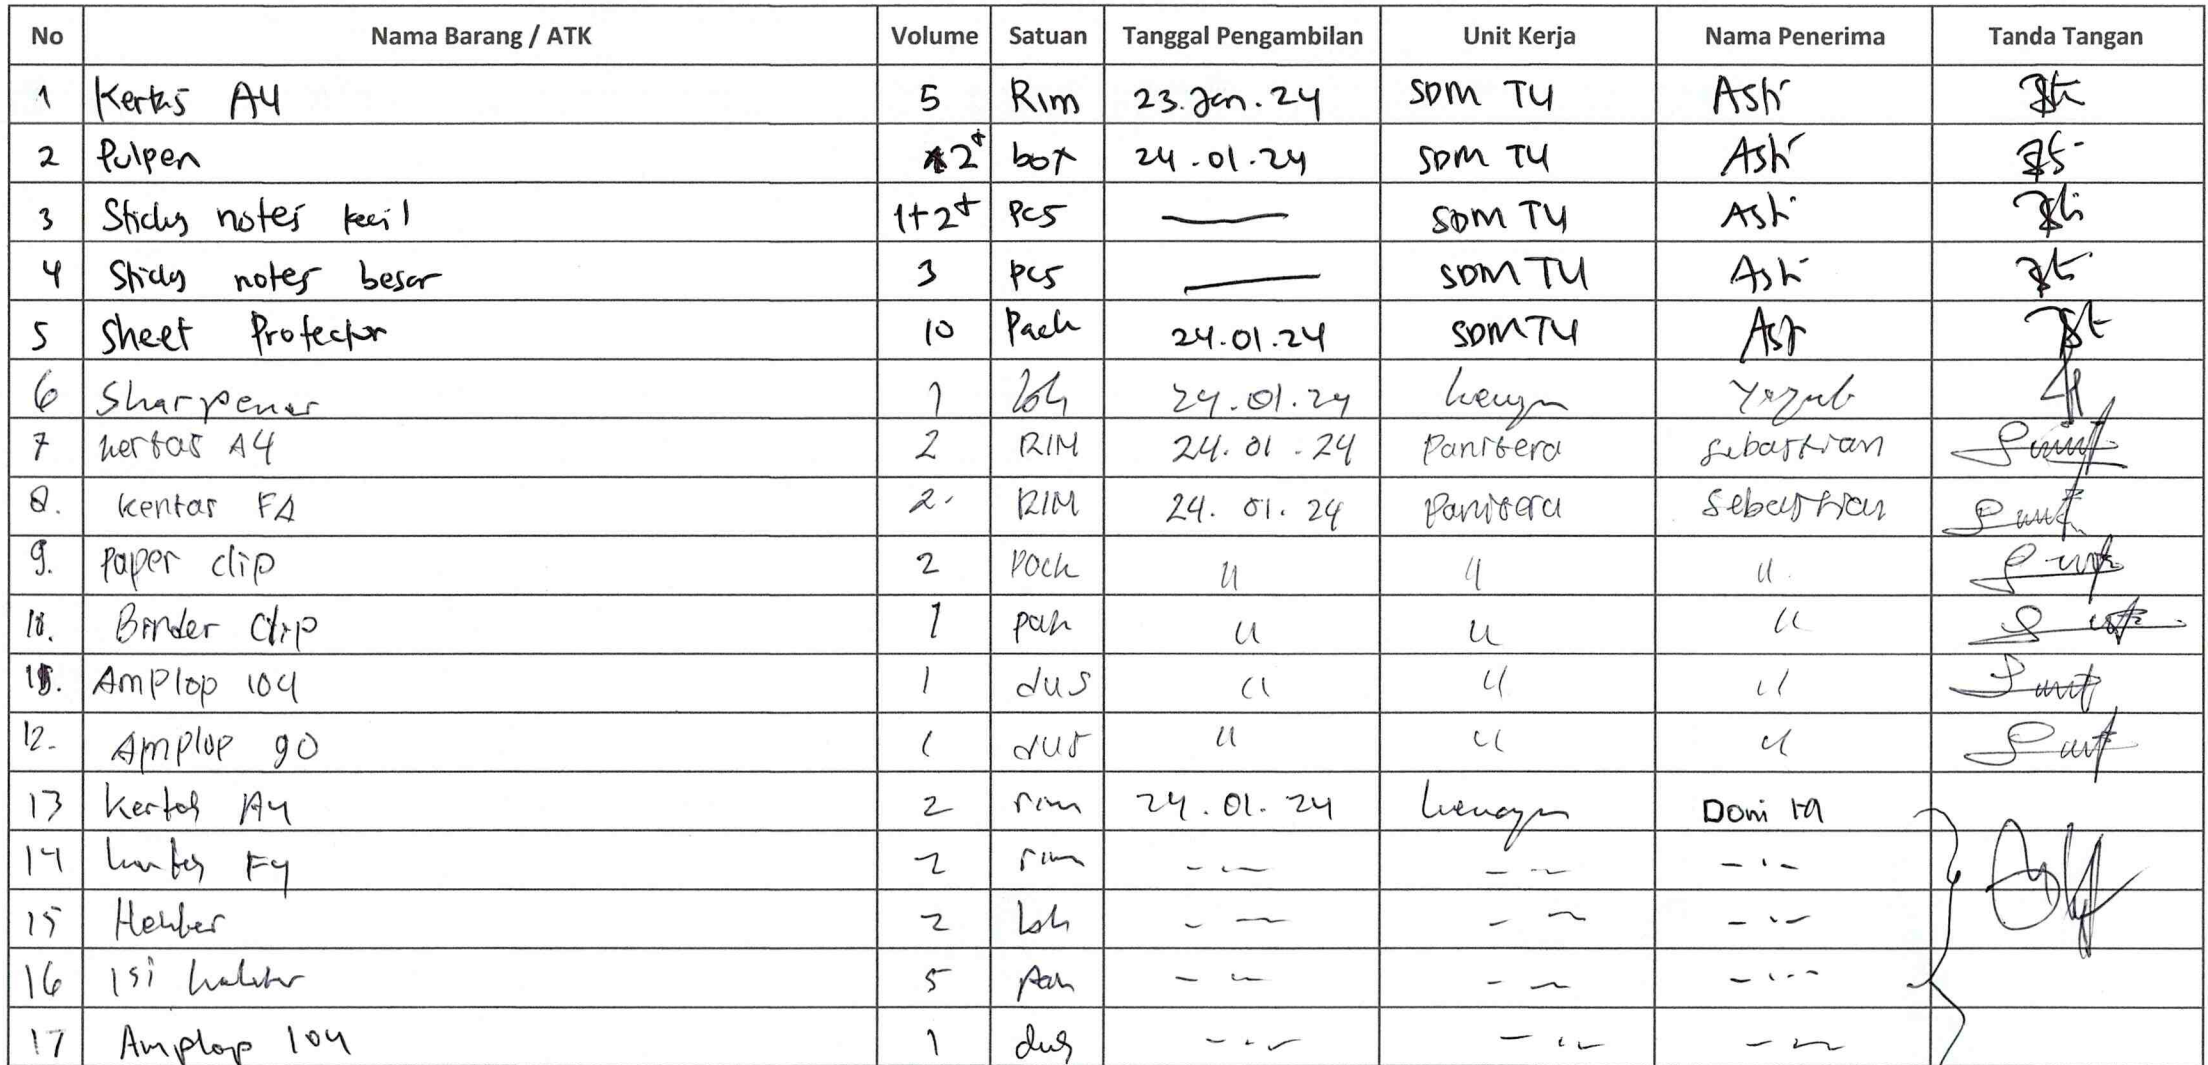 No Nama Barang / ATK Volume Satuan Tanggal Pengambilan Unit Kerja Nama Penerima Tanda Tangan
1 Kertas A4 5 Rim 23.Jan.24 SDM TU Asti
2 Pulpen 2+ box 24.01.24 SDM TU Asti
3 Sticky notes kecil 1+2+ Pcs — SDM TU Asti
4 Sticky notes besar 3 pcs — SDM TU Asti
5 Sheet Protector 10 Pack 24.01.24 SDM TU Asti
6 Sharpener 1 bh 24.01.24
7 kertas A4 2 RIM 24.01.24 Panitera Sebastian
8. kertas F4 2. RIM 24.01.24 Panitera Sebastian
9. Paper clip 2 Pack " " "
10. Binder Clip 1 pak " " "
11. Amplop 104 1 dus " " "
12. Amplop 90 1 dus " " "
13 Kertas A4 2 rim 24.01.24 Doni
14 kertas F4 2 rim
15 Hekter 2 bh
16 isi hekter 5 pak
17 Amplop 104 1 dus